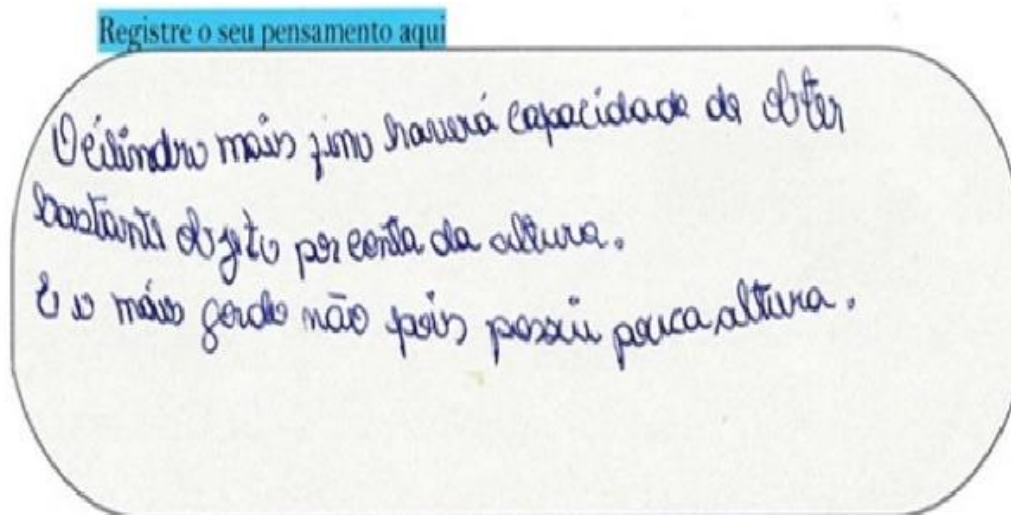 Registre o seu pensamento aqui
O cilindro mais fino haverá capacidade de obter
bastante objeto por conta da altura.
E o mais gordo não pois possui pouca altura.